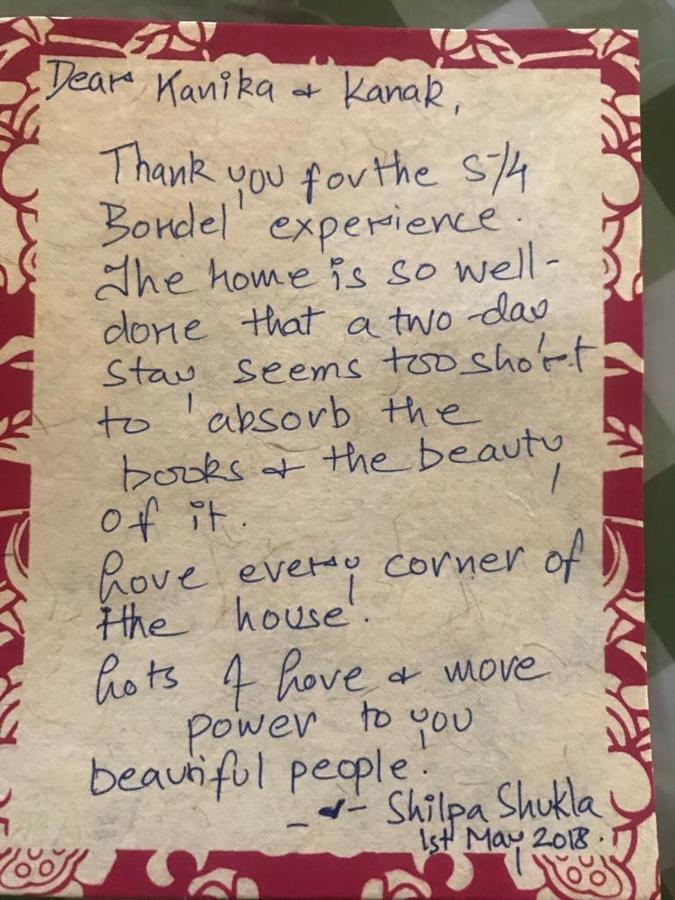 Dear Kanika & Kanak,
Thank you for the 5/4
Bordel experience.
The home is so well-
done that a two-day
stay seems too short
to absorb the
books & the beauty
of it.
Love every corner of
the house!
Lots of Love & more
power to you
beautiful people.
- Shilpa Shukla
1st May 2018.